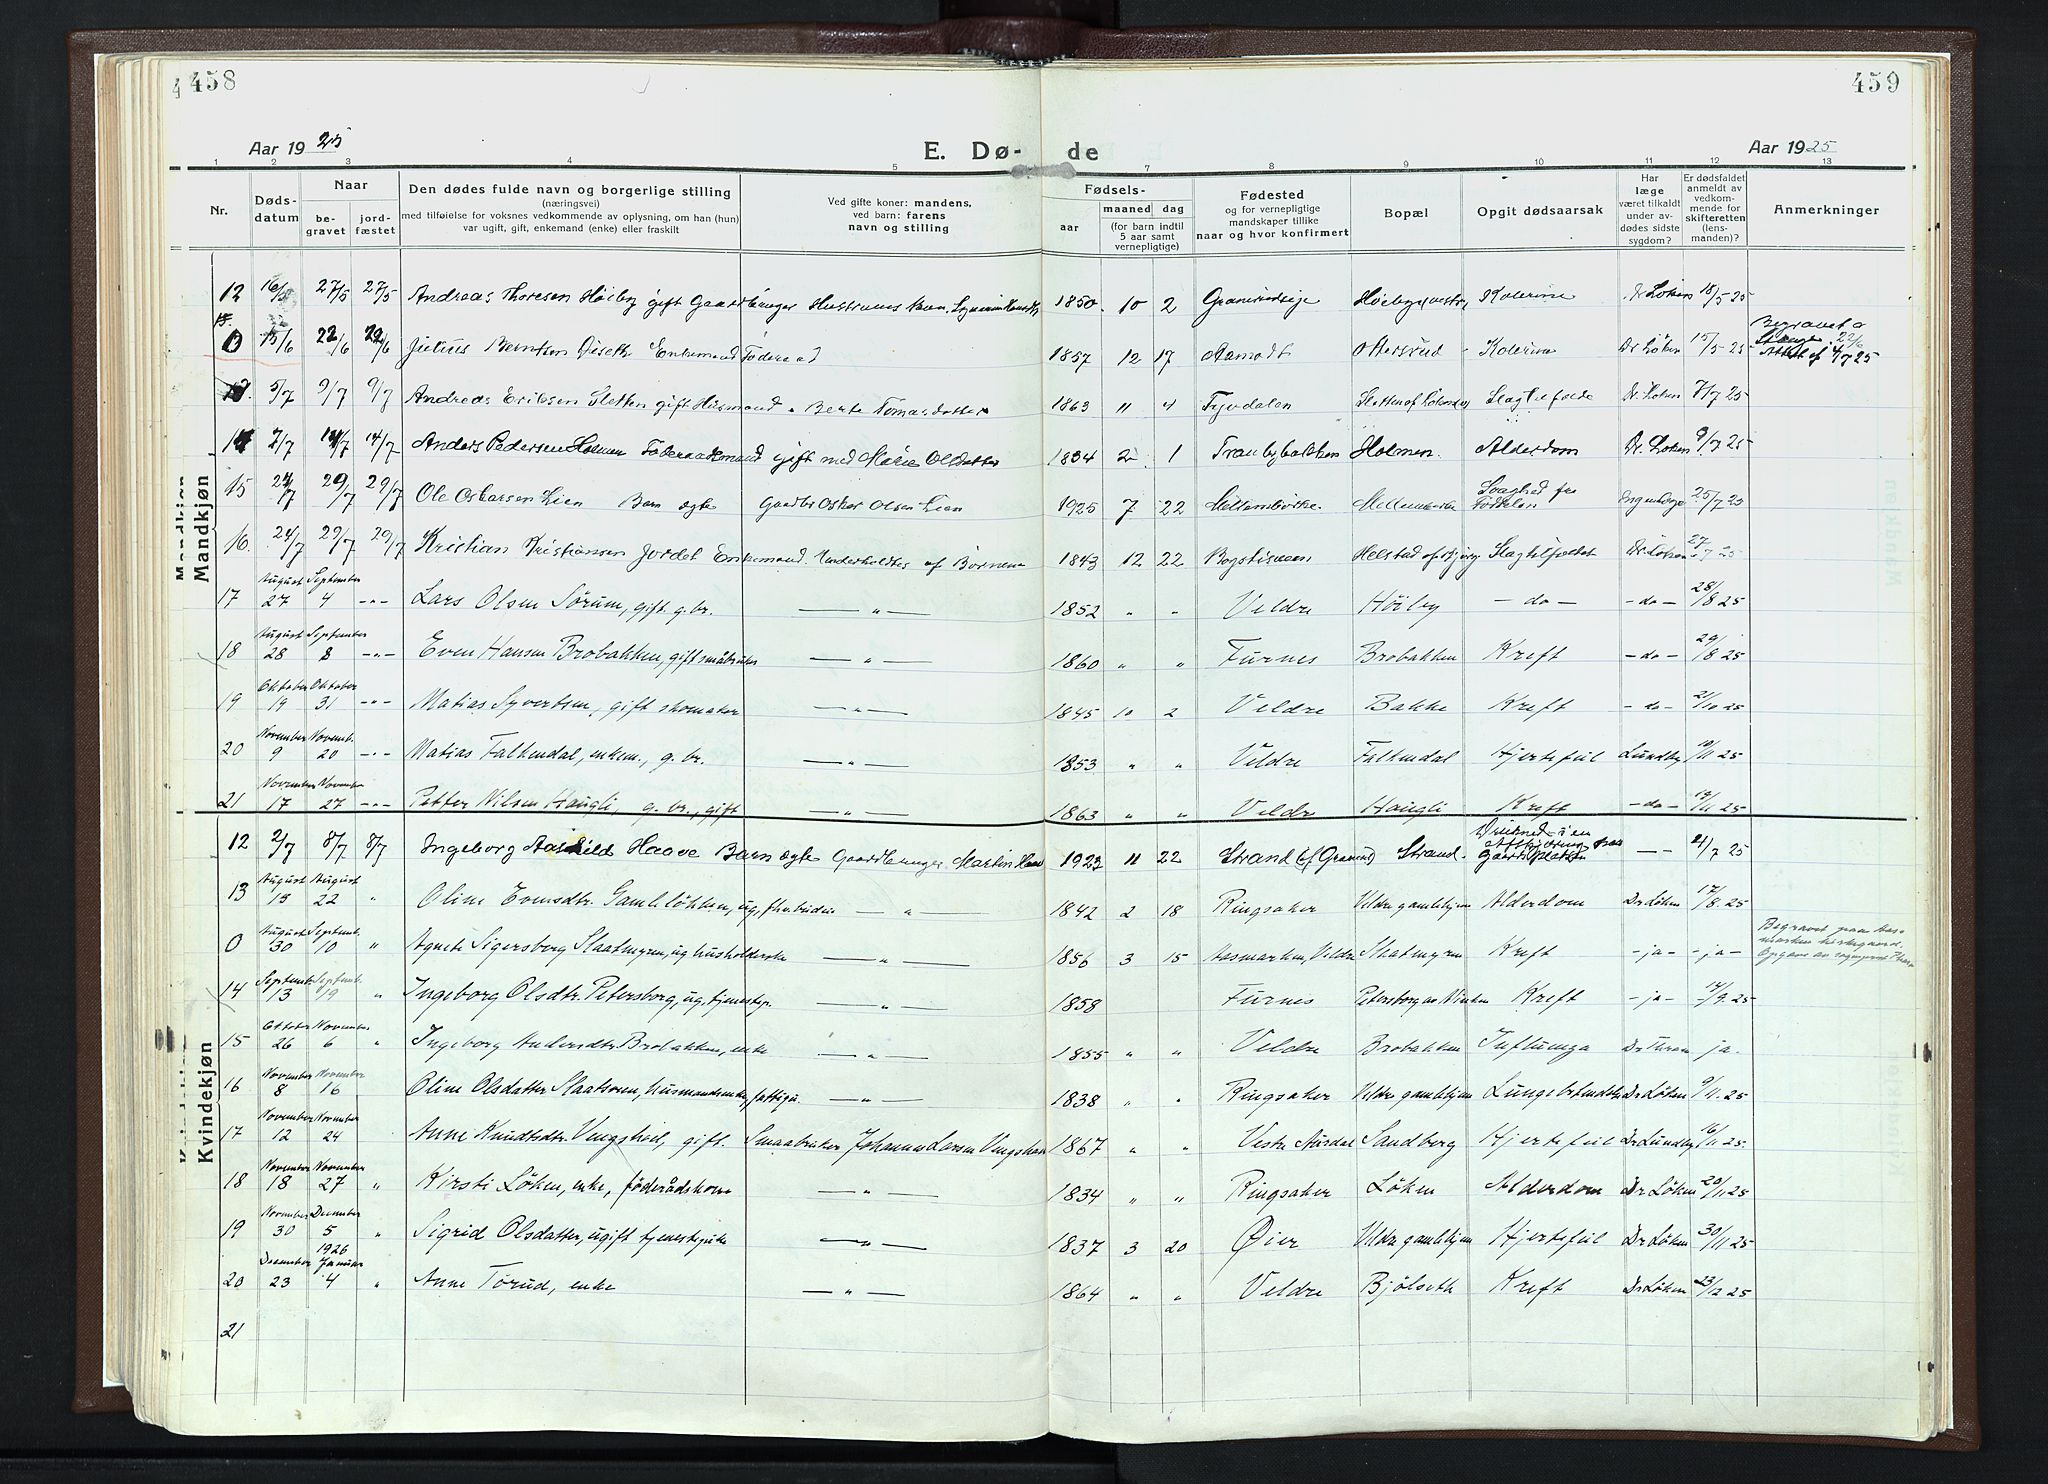 458
459
Aar 1925
E. Dø-
de
Aar 1925
1 2 3 4 5 7 8 9 10 11 12 13
Nr.
Døds-datum
Naar
be-gravet
jord-fæstet
Den dødes fulde navn og borgerlige stilling
(næringsvei)
med tilføielse for voksnes vedkommende av oplysning, om han (hun)
var ugift, gift, enkemand (enke) eller fraskilt
Ved gifte koner: mandens,
ved barn: farens
navn og stilling
Fødsels-
aar
maaned
dag
(for barn indtil
5 aar samt
vernepligtige)
Fødested
og for vernepligtige
mandskaper tillike
naar og hvor konfirmert
Bopæl
Opgit dødsaarsak
Har
læge
været tilkaldt
under av-
dødes sidste
sygdom?
Er dødsfaldet
anmeldt av
vedkom-
mende for
skifteretten
(lens-
manden)?
Anmerkninger
Mandkjøn
12 27/5 27/5 Andreas Thoresen Høieby gift 1850 10 2 Dr Løken 18/5 25
0 15/6 22/6 22/6 Julius Berntsen Enkemand Føderaad 1857 12 17 Aamodt Ottersrud Dr Løken 15/5 25 Begravet
5/7 9/7 9/7 Andreas Eriksen Sletten gift Husmand Berte Tomasdatter 1863 11 4 Slagtilfælde Dr. Løken 7/7 25
14 7/7 14/7 14/7 Anders Pedersen Holmen Føderaadsmand gift med Marie Olsdatter 1834 2 1 Tranbybakken Holmen. Alderdom Dr. Løken 9/7 25
15 24/7 29/7 29/7 Ole Oskarsen Lien Barn ægte Gaardbr Oskar Olsen Lien 1925 7 22 Svaghed fra Fødselen 25/7 25
16. 24/7 29/7 29/7 Kristian Kristiansen Jordet Enkemand. Underholdtes af Børnene 1843 12 22 Dr. Løken 27/7 25
17 August 27 September 4 -"- Lars Olsen Sørum, gift. g.br. — " — 1852 " " Veldre Høiby — do — - do - 28/8 25
18 August 28 September 8 -"- Even Hansen Brobakken, gift småbruker — " — 1860 " " Furnes Brobakken Kreft - do - 29/8 25
19 Oktober 19 Oktober 31 -"- Matias Syvertsen, gift skomaker — " — 1845 10 2 Veldre Bakke Kreft - do - 21/10 25
20 November 9 Novemb. 20 -"- Matias Falkendal, enkem., g. br. — " — 1853 " " Veldre Falkendal Hjertefeil Lundby 10/11 25
21 November 17 November 27 -"- Petter Nilsen Haugli, g. br., gift — " — 1863 " " Veldre Haugli Kreft - do - 19/11 25
Kvindekjøn
12 2/7 8/7 8/7 Ingeborg Haave Barn ægte Gaardbruger Martin 1923 11 22 Strand Strand. — 4/7 25
13 August 15 August 22 " Oline Evensdtr. Gamleløkken, ug., — " — 1842 2 18 Ringsaker Veldre gamlehjem Alderdom Dr Løken 17/8.25
0 August 30 Septemb. 10 " Agnete Sigersborg Slaatmyren, ug husholderske — " — 1856 3 15 Aasmarken, Veldre Slaatmyren Kreft - ja - - ja - Begravet paa Aas-marken kirkegaard.
14 Septemb. 13 Septemb. 19 " Ingeborg Olsdtr. Petersborg, ug, tjenestep. — " — 1858 Furnes Petersborg Kreft - ja - 14/9.25
15 Oktober 26 November 6 " Ingeborg Andersdtr Brobakken, enke — " — 1855 " " Veldre Brobakken ja.
16 November 8 November 16 " Oline Olsdatter Slaatsveen, husmandsenke, — " — 1838 " " Ringsaker Veldre gamlehjem Lungebetændelse Dr Løken 9/11.25
17 November 12 November 24 Anne Knudtsdtr. Vingshød, gift. Smaabruker Johannes Larsen 1867 " " Vestre Aursdal Sandberg Hjertefeil Dr Lundby 16/11 25.
18 November 18 November 27 " Kirsti Løken, enke, føderådskone — " — 1834 " " Ringsaker Løken Alderdom Dr Løken 20/11 25
19 November 30 December 5 " Sigrid Olsdatter, ugift tjenestepike — " — 1837 3 20 Øier Veldre gamlehjem Hjertefeil Dr Løken 30/11 25
20 December 23 1926 Januar 4 " Anne Torud, enke — " — 1864 " " Veldre Bjølseth Kreft Dr Løken 23/12 25
21